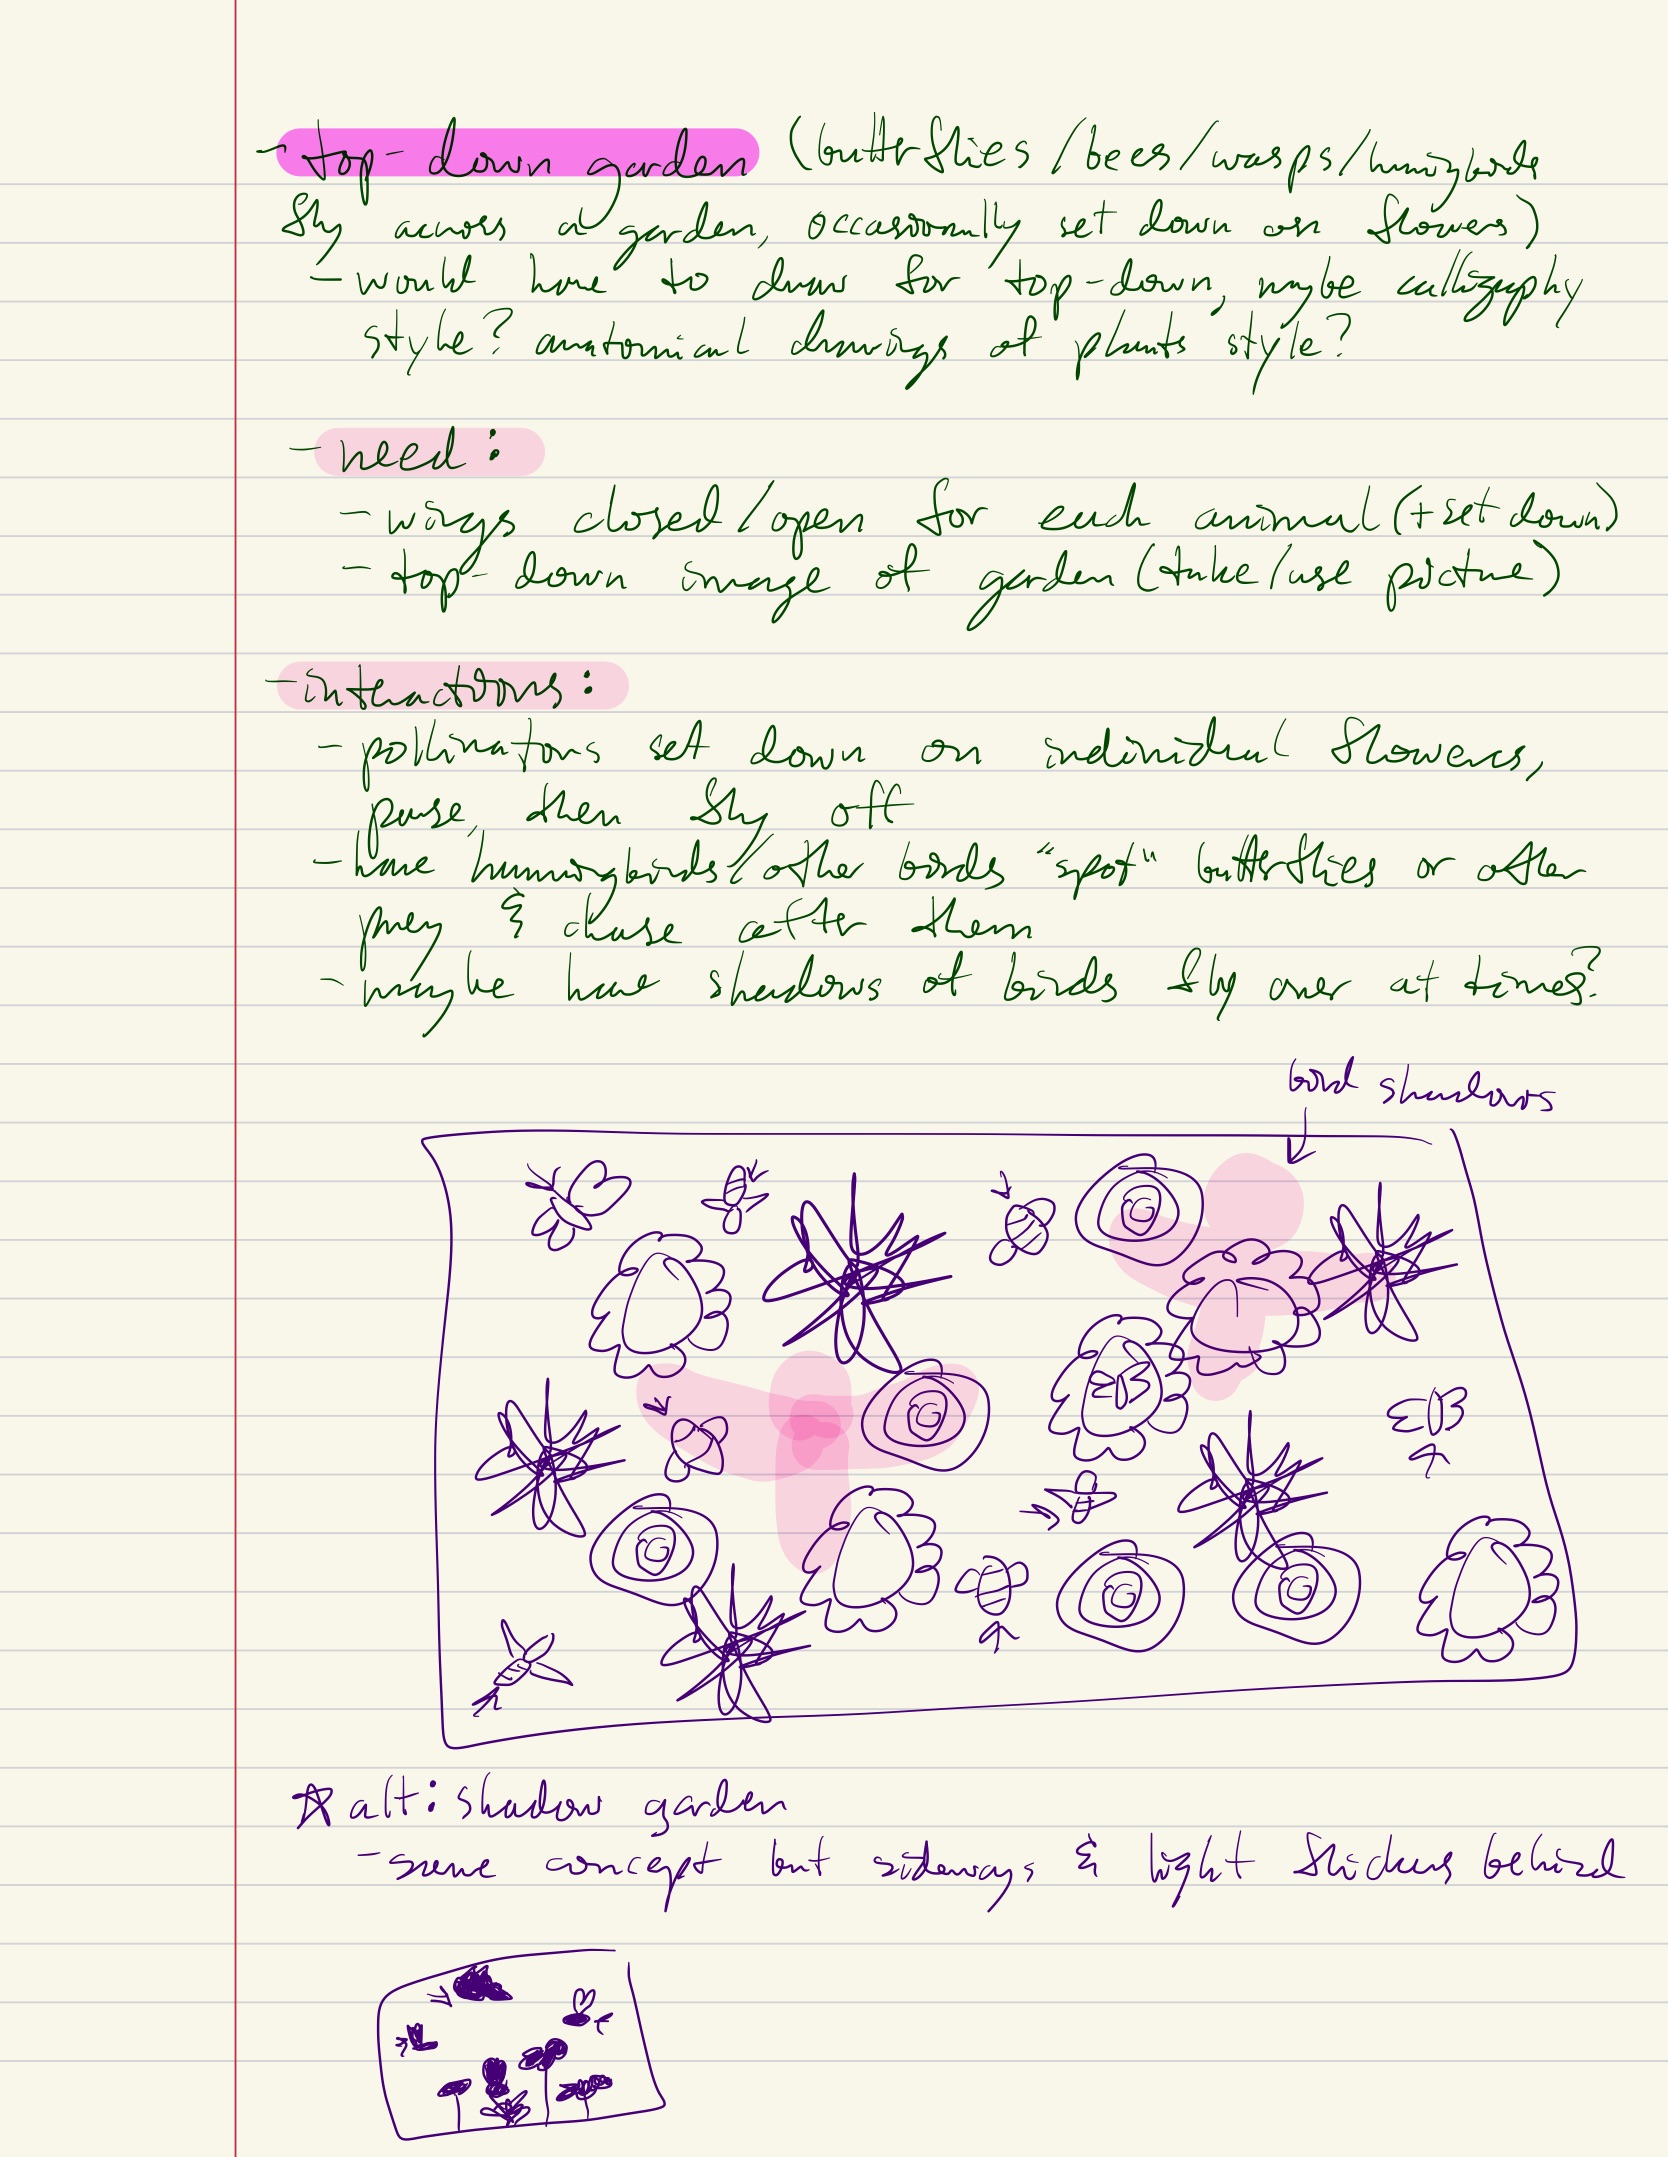 - top-down garden (butterflies/bees/wasps/hummingbirds
fly across a garden, occasionally set down on flowers)
- would have to draw for top-down, maybe calligraphy
style? anatomical drawings of plants style?
- need:
- wings closed/open for each animal (+ set down)
- top-down image of garden (take/use picture)
- interactions:
- pollinators set down on individual flowers,
pause, then fly off
- have hummingbirds/other birds "spot" butterflies or other
prey & chase after them
- maybe have shadows of birds fly over at times?
bird shadows
☆ alt: shadow garden
- same concept but sideways & light flickers behind